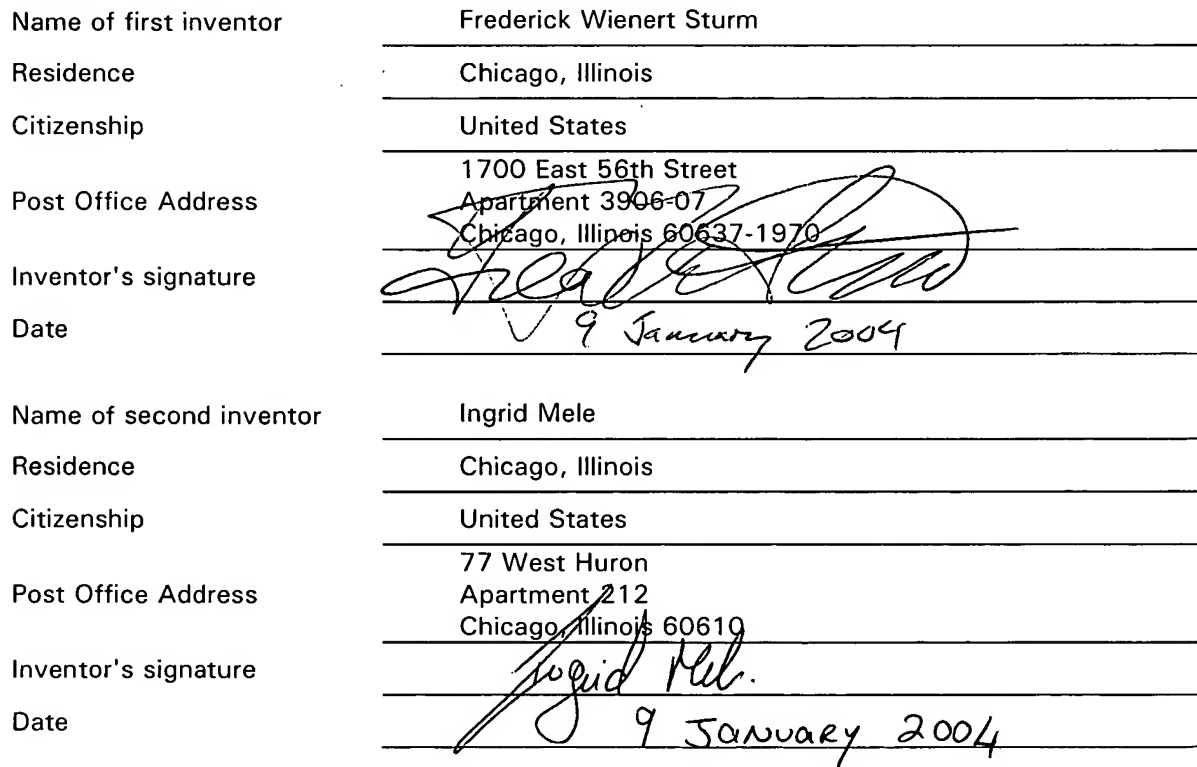 Name of first inventor Frederick Wienert Sturm
Residence Chicago, Illinois
Citizenship United States
1700 East 56th Street
Post Office Address Apartment 3906-07
Chicago, Illinois 60637-1970
Inventor's signature
Date 9 January 2004
Name of second inventor Ingrid Mele
Residence Chicago, Illinois
Citizenship United States
77 West Huron
Post Office Address Apartment 212
Chicago, Illinois 60610
Inventor's signature Ingrid Mele
Date 9 January 2004